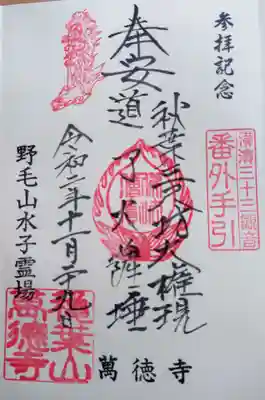 参拝記念
三十三観音
番外手引
秋葉三尺坊大権現
奉安道了大薩埵
令和二年十一月二十九日
野毛山水子霊場
萬徳寺
葉山
萬徳寺